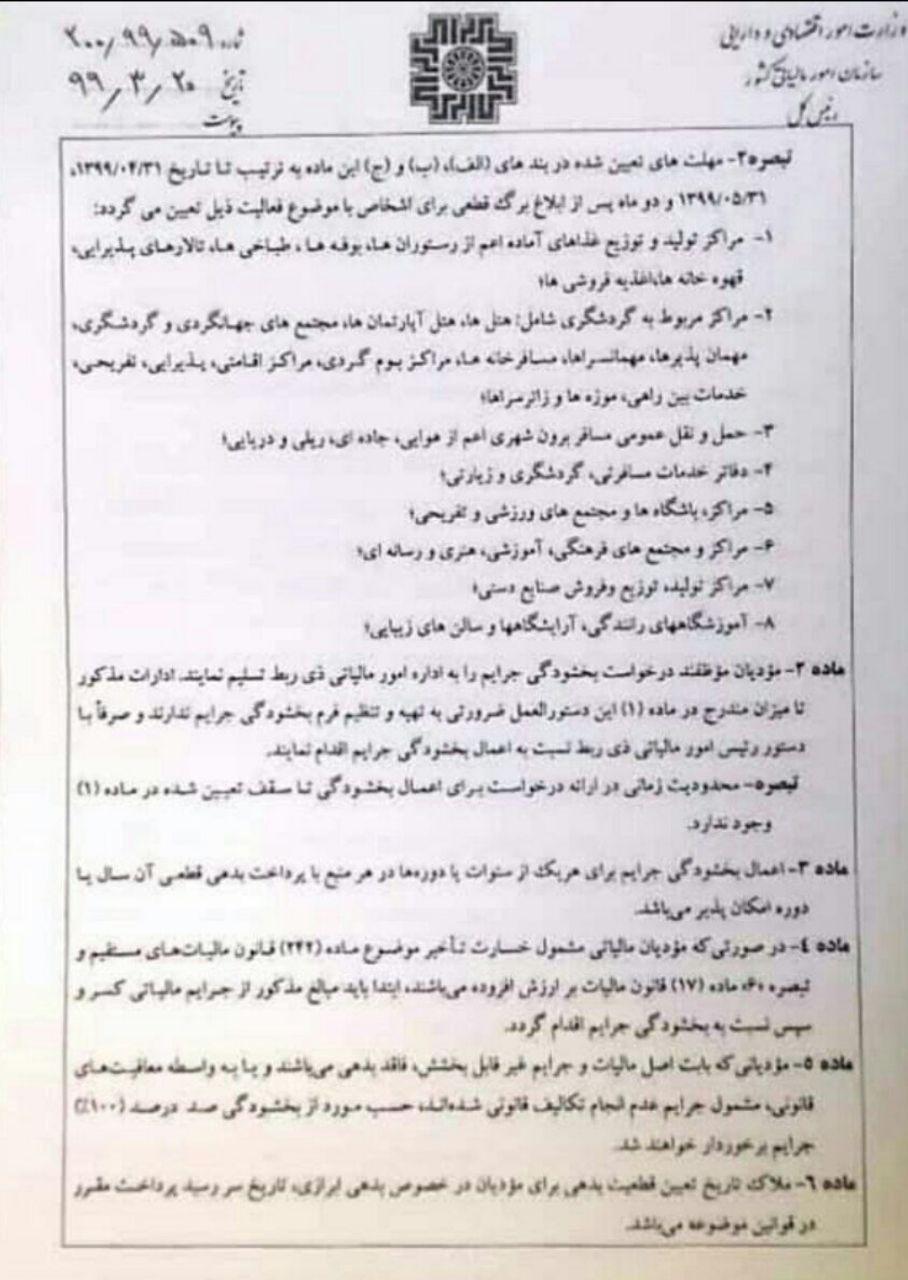 وزارت امور اقتصادی و دارایی
سازمان امور مالیاتی کشور
رئیس کل
شماره ۲۰۰/۹۹/۵۰۹
تاریخ ۹۹/۳/۲۰
پیوست
تبصره۲- مهلت های تعیین شده در بند های (الف)، (ب) و (ج) این ماده به ترتیب تا تاریخ ۱۳۹۹/۰۴/۳۱،
۱۳۹۹/۰۵/۳۱ و دو ماه پس از ابلاغ برگ قطعی برای اشخاص با موضوع فعالیت ذیل تعیین می گردد:
۱- مراکز تولید و توزیع غذاهای آماده اعم از رستوران ها، بوفه ها، طباخی ها، تالارهای پذیرایی،
قهوه خانه ها،اغذیه فروشی ها؛
۲- مراکز مربوط به گردشگری شامل: هتل ها، هتل آپارتمان ها، مجتمع های جهانگردی و گردشگری،
مهمان پذیرها، مهمانسراها، مسافرخانه ها، مراکز بوم گردی، مراکز اقامتی، پذیرایی، تفریحی،
خدمات بین راهی، موزه ها و زائرسراها؛
۳- حمل و نقل عمومی مسافر برون شهری اعم از هوایی، جاده ای، ریلی و دریایی؛
۴- دفاتر خدمات مسافرتی، گردشگری و زیارتی؛
۵- مراکز، باشگاه ها و مجتمع های ورزشی و تفریحی؛
۶- مراکز و مجتمع های فرهنگی، آموزشی، هنری و رسانه ای؛
۷- مراکز تولید، توزیع وفروش صنایع دستی؛
۸- آموزشگاههای رانندگی، آرایشگاهها و سالن های زیبایی؛
ماده ۲- مؤدیان مؤظفند درخواست بخشودگی جرایم را به اداره امور مالیاتی ذی ربط تسلیم نمایند. ادارات مذکور
تا میزان مندرج در ماده (۱) این دستورالعمل ضرورتی به تهیه و تنظیم فرم بخشودگی جرایم ندارند و صرفاً با
دستور رئیس امور مالیاتی ذی ربط نسبت به اعمال بخشودگی جرایم اقدام نمایند.
تبصره- محدودیت زمانی در ارائه درخواست برای اعمال بخشودگی تا سقف تعیین شده در ماده (۱)
وجود ندارد.
ماده ۳- اعمال بخشودگی جرایم برای هریک از سنوات یا دوره‌ها در هر منبع با پرداخت بدهی قطعی آن سال یا
دوره امکان پذیر می‌باشد.
ماده ٤- در صورتی‌که مؤدیان مالیاتی مشمول خسارت تأخیر موضوع ماده (۲۴۲) قانون مالیات‌های مستقیم و
تبصره «۶» ماده (۱۷) قانون مالیات بر ارزش افزوده می‌باشند، ابتدا باید مبالغ مذکور از جرایم مالیاتی کسر و
سپس نسبت به بخشودگی جرایم اقدام گردد.
ماده ٥- مؤدیانی‌که بابت اصل مالیات و جرایم غیر قابل بخشش، فاقد بدهی می‌باشند و یا به واسطه معافیت‌های
قانونی، مشمول جرایم عدم انجام تکالیف قانونی شده‌اند، حسب مورد از بخشودگی صد درصد (۱۰۰٪)
جرایم برخوردار خواهند شد.
ماده ٦- ملاک تاریخ تعیین قطعیت بدهی برای مؤدیان در خصوص بدهی ابرازی، تاریخ سر رسید پرداخت مقرر
در قوانین موضوعه می‌باشد.